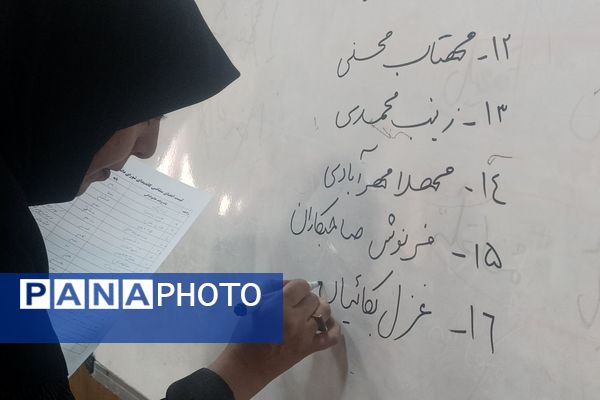 ۱۲- مهتاب محسنی
۱۳- زینب محمدی
۱۴- مهلا مهرآبادی
۱۵- فرنوش صاحبکاران
۱۶- غزل بکائیان
PANAPHOTO